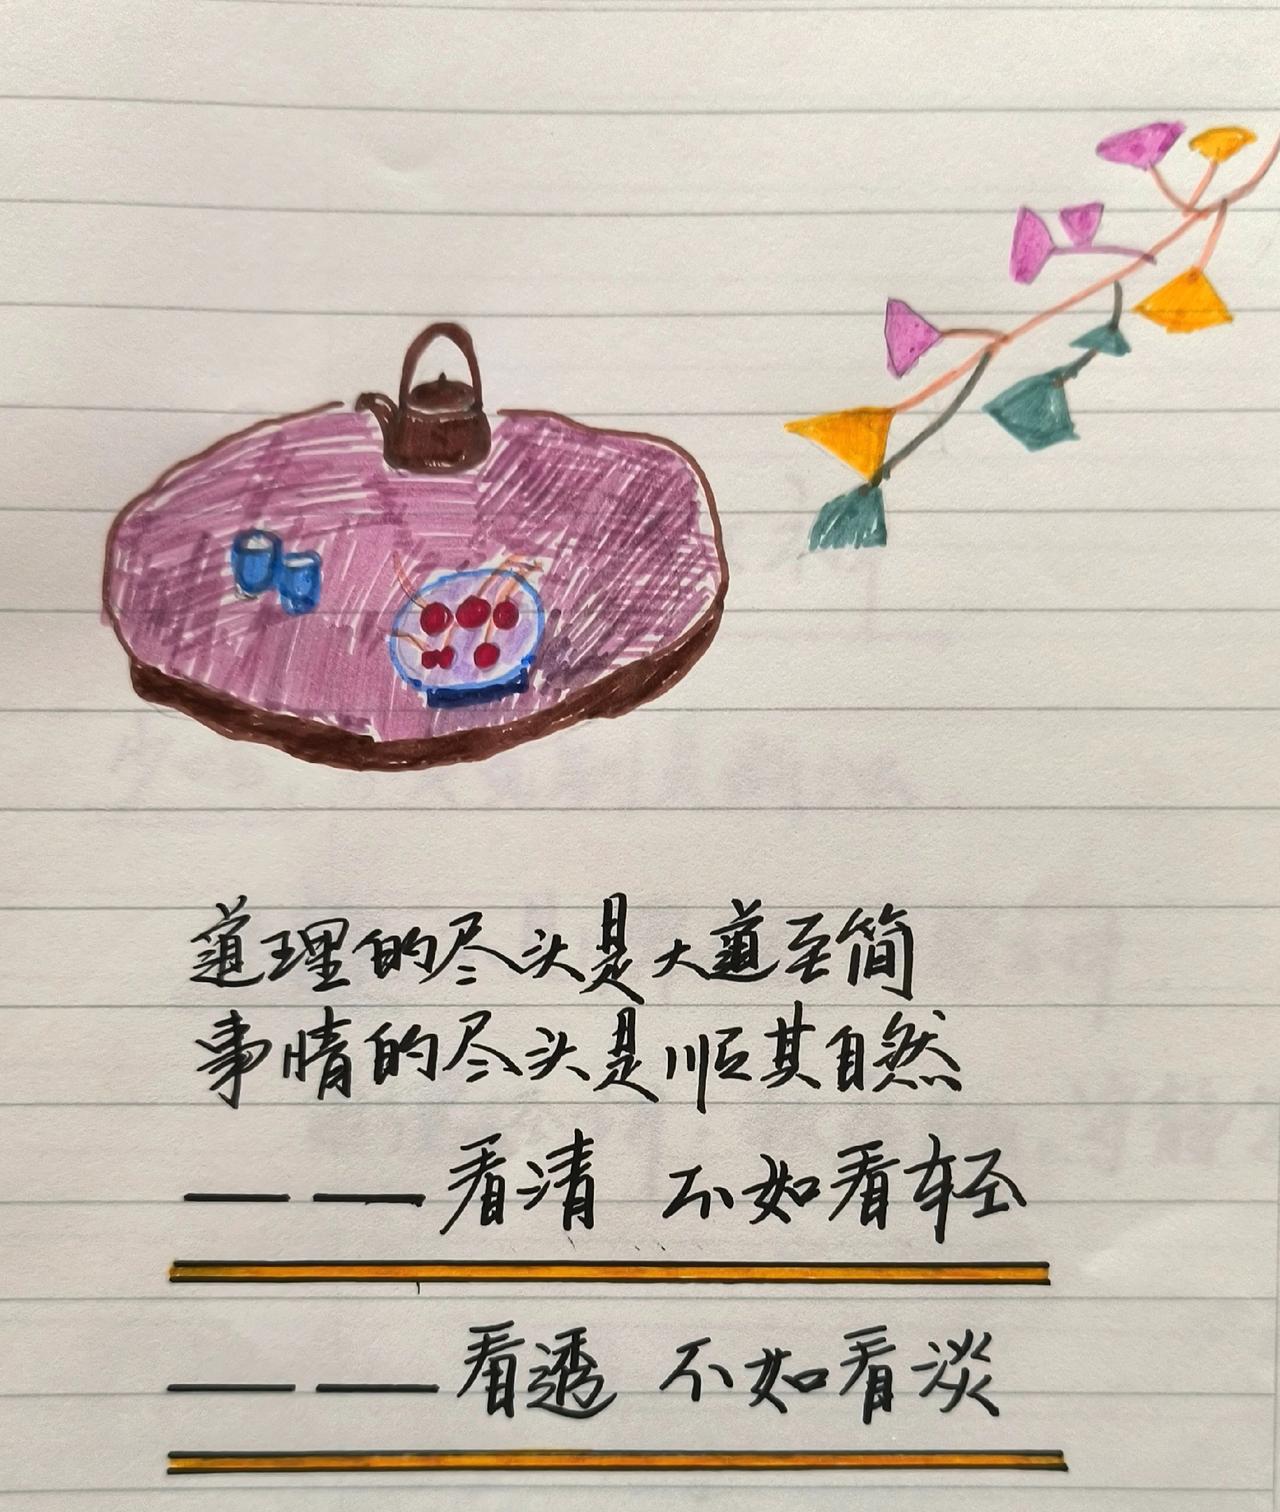 道理的尽头是大道至简
事情的尽头是顺其自然
—— ——看清 不如看轻
—— ——看透 不如看淡